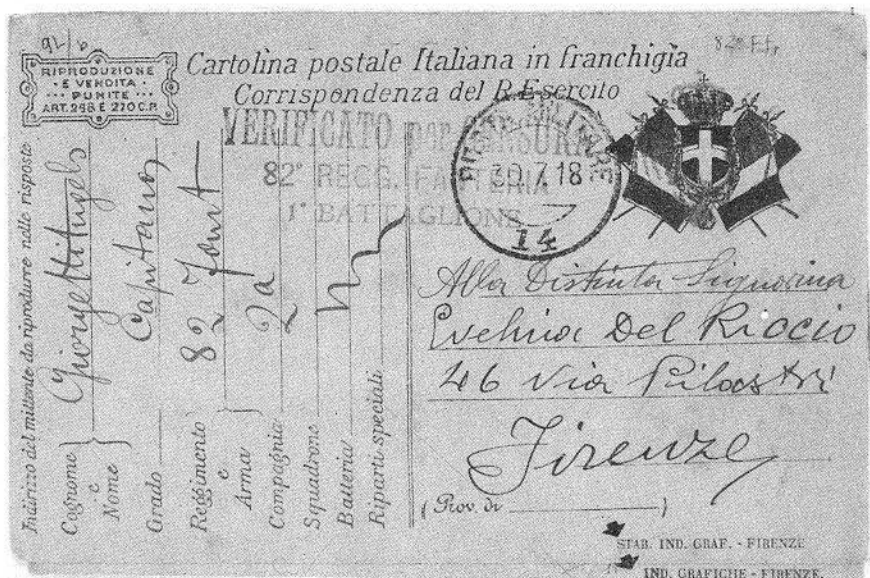 92/6
RIPRODUZIONE
· E VENDITA ·
··· PUNITE ···
ART. 248 E 270 C.P.
Cartolina postale Italiana in franchigia
Corrispondenza del R. Esercito
VERIFICATO PER CENSURA
82° REGG. FANTERIA
1° BATTAGLIONE
POSTA MILITARE
30.7.18
14
Indirizzo del mittente da riprodurre nelle risposte
Cognome e Nome Giorgetti Angelo
Grado Capitano
Reggimento e Arma 82 Fant
Compagnia 2a
Squadrone
Batteria
Riparti speciali
Alla Distinta Signorina
Evelina Del Riccio
46 Via Pilastri
Firenze
(Prov. di )
STAB. IND. GRAF. - FIRENZE
IND. GRAFICHE - FIRENZE.